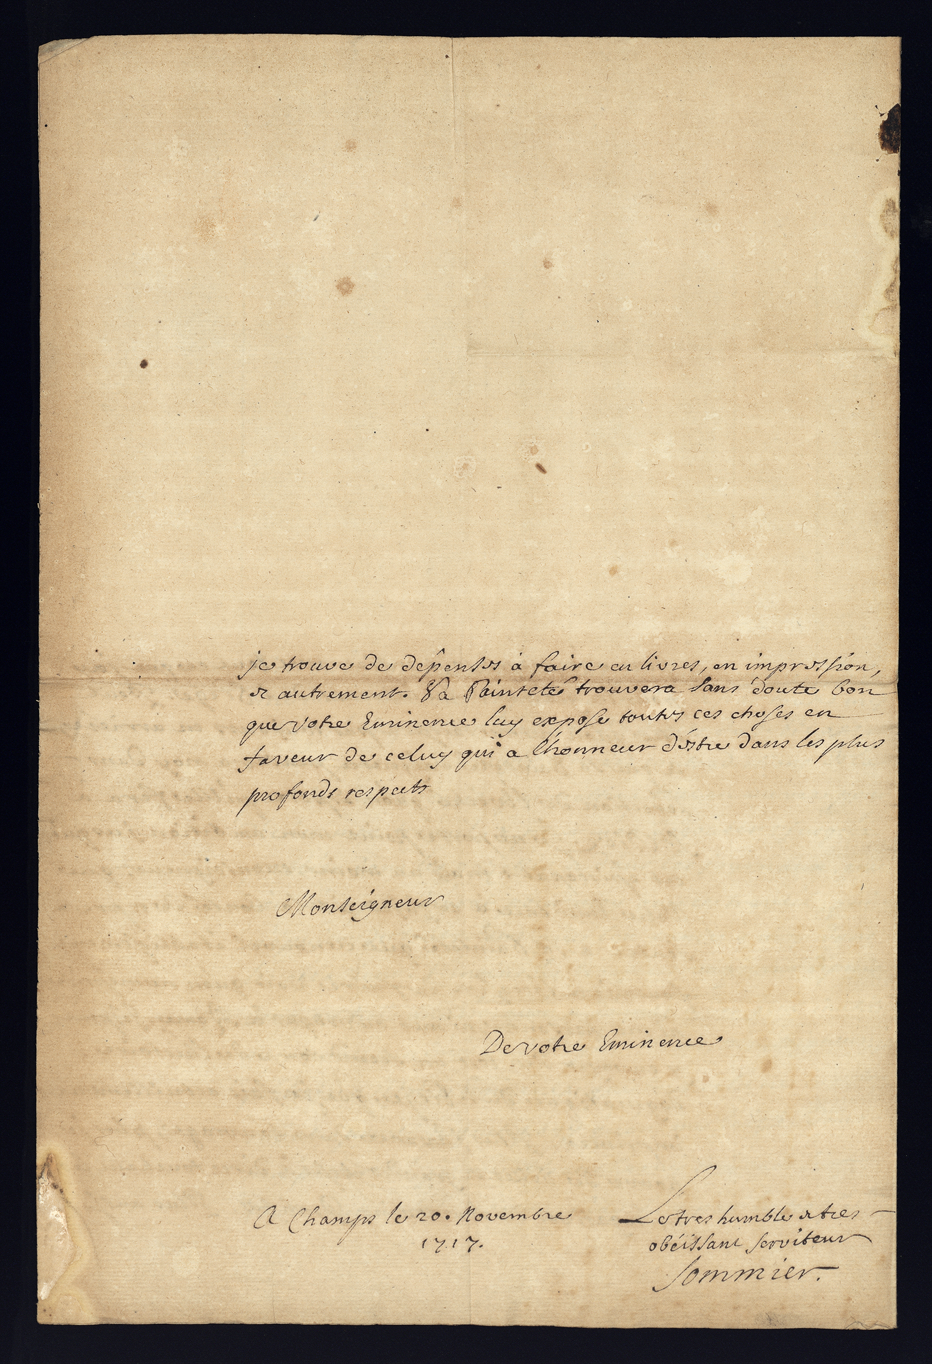 je trouve de dépenses à faire en livres, en impression,
et autrement. Sa Sainteté trouvera sans doute bon
que votre Eminence luy expose toutes ces choses en
faveur de celuy qui a l'honneur d'estre dans les plus
profonds respects
Monseigneur
De votre Eminence
A Champs le 20. Novembre
1717.
Le tres humble et tres
obéissant serviteur
Sommier.